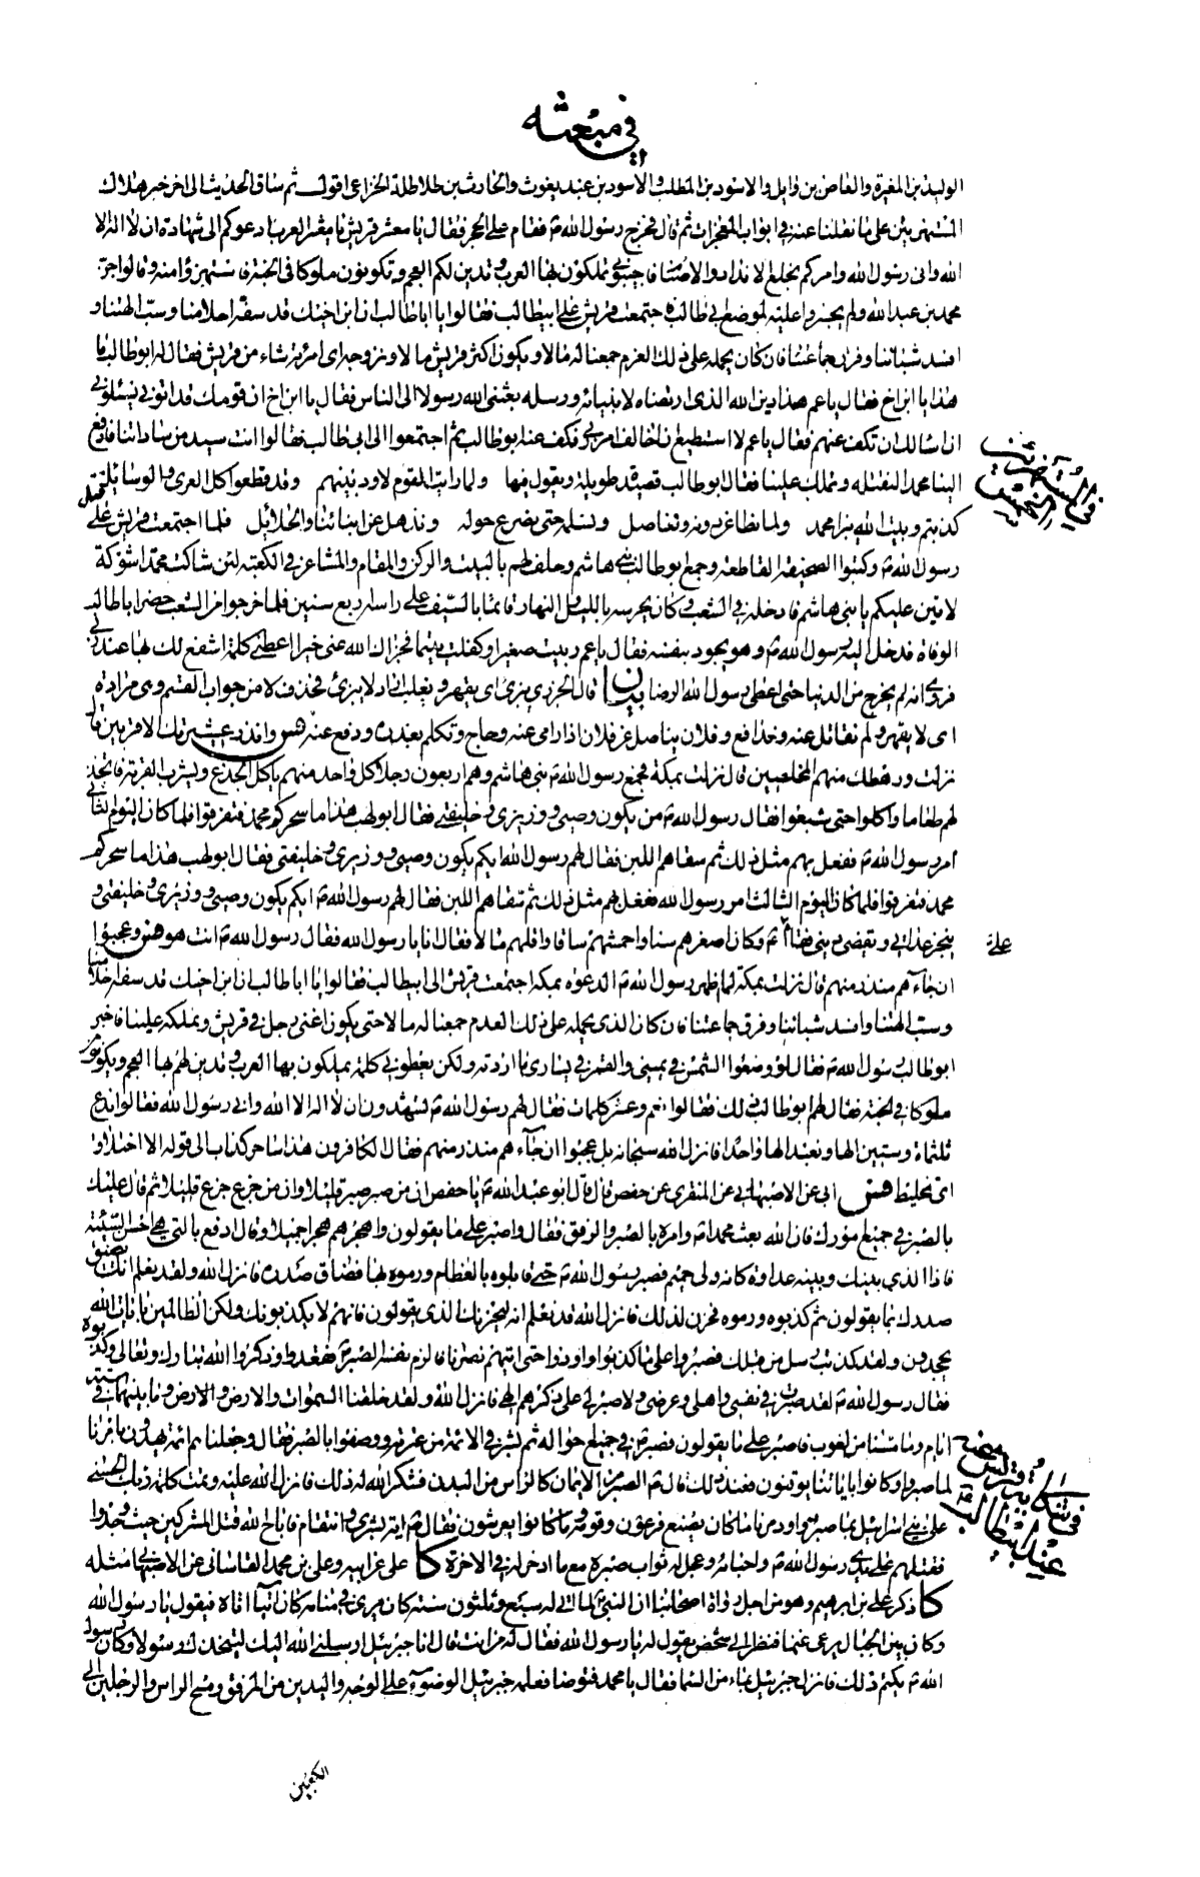 في مبعثه
الوليد بن المغيرة والعاص بن وايل والاسود بن المطلب والاسود بن عبد يغوث والحارث بن طلاطلة الخزاعي اقول ثم ساق الحديث الى اخر خبر هلاك
المستهزئين على ما نقلنا عنه في ابواب المعجزات ثم قال فخرج رسول الله ص فقام على الحجر فقال يا معشر قريش يا معشر العرب ادعوكم الى شهادة ان لا اله الا
الله واني رسول الله وامركم بخلع الانداد والاصنام فاجيبوني تملكون بها العرب وتدين لكم العجم وتكونون ملوكا في الجنة فاستهزؤا منه وقالوا جن
محمد بن عبد الله ولم يجسروا عليه لموضع ابي طالب فاجتمعت قريش على ابيطالب فقالوا يا اباطالب ان ابن اخيك قد سفه احلامنا وسب الهتنا و
افسد شباننا وفرق جماعتنا فان كان يحمله على ذلك العدم جمعنا له مالا ويكون اكثر قريش مالا ونزوجه اي امرئة شاء من قريش فقال له ابو طالب ما
هذا يا ابن اخ فقال يا عم هذا دين الله الذي ارتضاه لانبيائه ورسله بعثني الله رسولا الى الناس فقال يا ابن اخ ان قومك قد اتوني يسئلوني
ان اسالك ان تكف عنهم فقال يا عم لا استطيع ان اخالف امر ربي فكف عنه ابو طالب ثم اجتمعوا الى ابي طالب فقالوا انت سيد من ساداتنا فادفع
الينا محمدا لنقتله وتملك علينا فقال ابو طالب قصيدته طويلة ويقول فيها ولما رايت القوم لا ود بينهم وقد قطعوا كل العرى والوسائل
كذبتم وبيت الله يبزا محمد ولما نطاعن دونه ونناضل ونسلمه حتى نصرع حوله ونذهل عن ابنائنا والحلائل فلما اجتمعت قريش على قتل
رسول الله ص وكتبوا الصحيفة القاطعة وجمع ابو طالب بني هاشم وحلف لهم بالبيت والركن والمقام والمشاعر في الكعبة لئن شاكت محمدا شوكة
لاتين عليكم يا بني هاشم فادخله في الشعب وكان يحرسه بالليل والنهار قائما بالسيف على راسه اربع سنين فلما خرجوا من الشعب حضر اباطالب
الوفاة فدخل اليه رسول الله ص وهو يجود بنفسه فقال يا عم ربيت صغيرا وكفلت يتيما فجزاك الله عني خيرا اعطني كلمة اشفع لك بها عند ربي
فروي انه لم يخرج من الدنيا حتى اعطى رسول الله الرضا بيان قال الجزري يبزى اي يقهر ويغلب اراد لا يبزى فحذف لا من جواب القسم وهي مرادة
اي لا يقهر ولم نقاتل عنه وندافع وفلان يناضل عن فلان اذا رامى عنه وحاج وتكلم بعذره ودفع عنه فس وانذر عشيرتك الاقربين قال
نزلت ورهطك منهم المخلصين قال نزلت بمكة فجمع رسول الله ص بني هاشم وهم اربعون رجلا كل واحد منهم ياكل الجذع ويشرب القربة فاتخذ
لهم طعاما واكلوا حتى شبعوا فقال رسول الله ص من يكون وصيي ووزيري وخليفتي فقال ابو لهب هذا ما سحركم محمد فتفرقوا فلما كان اليوم الثاني
امر رسول الله ص ففعل بهم مثل ذلك ثم سقاهم اللبن فقال لهم رسول الله ايكم يكون وصيي ووزيري وخليفتي فقال ابو لهب هذا ما سحركم
محمد فتفرقوا فلما كان اليوم الثالث امر رسول الله ففعل لهم مثل ذلك ثم سقاهم اللبن فقال لهم رسول الله ص ايكم يكون وصيي ووزيري وخليفتي و
ينجز عداتي ويقضي ديني فقام ع وكان اصغرهم سنا واحمشهم ساقا واقلهم مالا فقال انا يا رسول الله فقال رسول الله ص انت هو فس وعجبوا
علي
ان جاءهم منذر منهم قال نزلت بمكة لما اظهر رسول الله ص الدعوة بمكة اجتمعت قريش الى ابيطالب فقالوا يا اباطالب ان ابن اخيك قد سفه احلامنا
وسب الهتنا وافسد شباننا وفرق جماعتنا فان كان الذي يحمله على ذلك العدم جمعنا له مالا حتى يكون اغنى رجل في قريش ونملكه علينا فاخبر
ابو طالب رسول الله ص فقال لو وضعوا الشمس في يميني والقمر في يساري ما اردته ولكن يعطوني كلمة يملكون بها العرب وتدين لهم بها العجم ويكونون
ملوكا في الجنة فقال لهم ابو طالب ذلك فقالوا نعم وعشر كلمات فقال لهم رسول الله ص تشهدون ان لا اله الا الله واني رسول الله فقالوا ندع
ثلثماة وستين الها ونعبد الها واحدا فانزل الله سبحانه بل عجبوا ان جاءهم منذر منهم فقال الكافرون هذا ساحر كذاب الى قوله الا اختلاق
اي تخليط فس ابي عن الاصبهاني عن المنقري عن حفص قال قال ابو عبد الله ع يا حفص ان من صبر صبر قليلا وان من جزع جزع قليلا ثم قال عليك
بالصبر في جميع امورك فان الله بعث محمدا ص وامره بالصبر والرفق فقال واصبر على ما يقولون واهجرهم هجرا جميلا وقال ادفع بالتي هي احسن السيئة
فاذا الذي بينك وبينه عداوة كانه ولي حميم فصبر رسول الله ص حتى قابلوه بالعظام ورموه بها فضاق صدره فانزل الله ولقد نعلم انك يضيق
صدرك بما يقولون ثم كذبوه ورموه فحزن لذلك فانزل الله قد نعلم انه ليحزنك الذي يقولون فانهم لا يكذبونك ولكن الظالمين بايات الله
يجحدون ولقد كذبت رسل من قبلك فصبروا على ما كذبوا واوذوا حتى اتيهم نصرنا فالزم نفسه الصبر ص فقعدوا وذكروا الله تبارك وتعالى وكذبوه
فقال رسول الله ص لقد صبرت في نفسي واهلي وعرضي ولا صبر لي على ذكرهم الهي فانزل الله ولقد خلقنا السموات والارض وما بينهما في ستة
ايام وما مسنا من لغوب فاصبر على ما يقولون فصبر ص في جميع احواله ثم بشر في الائمة من عترته ووصفوا بالصبر فقال وجعلنا منهم ائمة يهدون بامرنا
لما صبروا وكانوا باياتنا يوقنون فعند ذلك قال ص الصبر من الايمان كالراس من البدن فشكر الله له ذلك فانزل الله عليه وتمت كلمة ربك الحسنى
على بني اسرائيل بما صبروا ودمرنا ما كان يصنع فرعون وقومه وما كانوا يعرشون فقال ص اية بشرى وانتقام فاباح الله قتل المشركين حيث وجدوا
فقتلهم على يدي رسول الله ص واحبائه وعجل له ثواب صبره مع ما ادخر له في الاخرة كا علي عن ابيه وعلي بن محمد القاساني عن الاصبهاني مثله
كا ذكر علي بن ابرهيم وهو من اجل رواة اصحابنا ان النبي لما اتى له سبع وثلثون سنة كان يرى في منامه كان اتيا اتاه فيقول يا رسول الله
وكان بين الجبال يرعى غنما فنظر الى شخص يقول له يا رسول الله فقال له من انت قال انا جبرئيل ارسلني الله اليك ليتخذك رسولا وكان رسول
الله ص يكتم ذلك فانزل جبرئيل بماء من السماء فقال يا محمد قم توضا فعلمه جبرئيل الوضوء على الوجه واليدين من المرفق ومسح الراس والرجلين الى
الكعبين